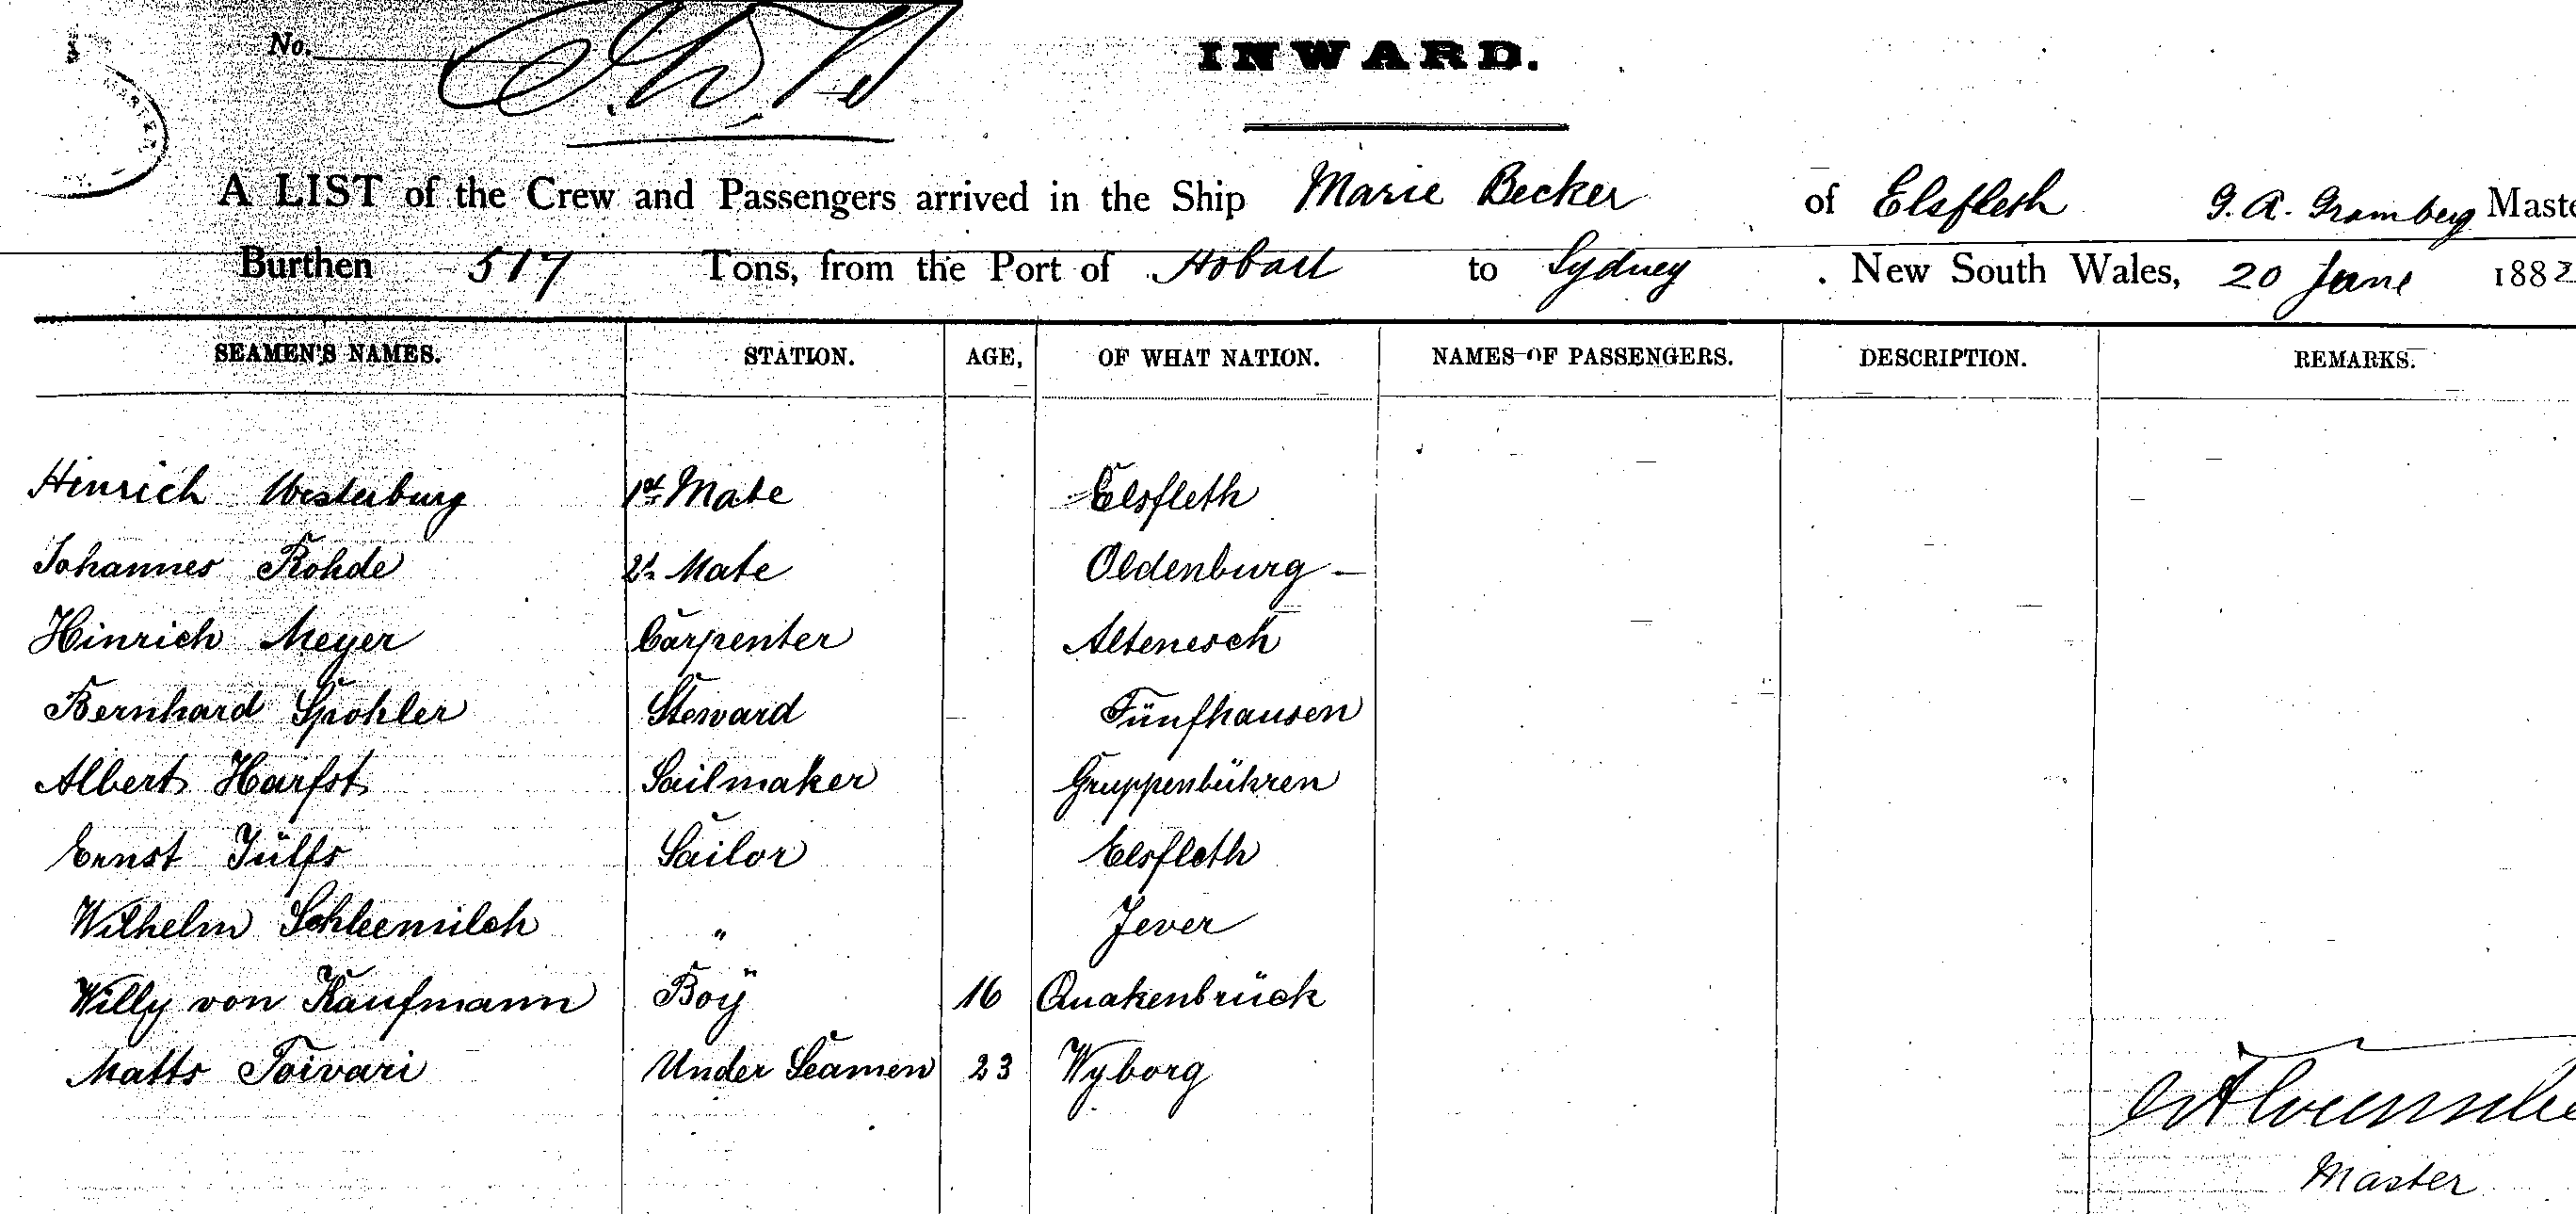 No.
INWARD.
A LIST of the Crew and Passengers arrived in the Ship Marie Becker of Elsfleth G. A. Gramberg Maste
Burthen 517 Tons, from the Port of Hobart to Sydney . New South Wales, 20 June 1882
SEAMEN'S NAMES. STATION. AGE, OF WHAT NATION. NAMES OF PASSENGERS. DESCRIPTION. REMARKS.
Hinrich Westerburg 1st Mate Elsfleth
Johannes Rohde 2d Mate Oldenburg —
Hinrich Meyer Carpenter Altenesch
Bernhard Spohler Steward Fünfhausen
Albert Harfst Sailmaker Gruppenbühren
Ernst Jülfs Sailor Elsfleth
Wilhelm Schleemilch " Jever
Willy von Kaufmann Boÿ 16 Quakenbrück
Matts Toivari Under Seamen 23 Wyborg
Master